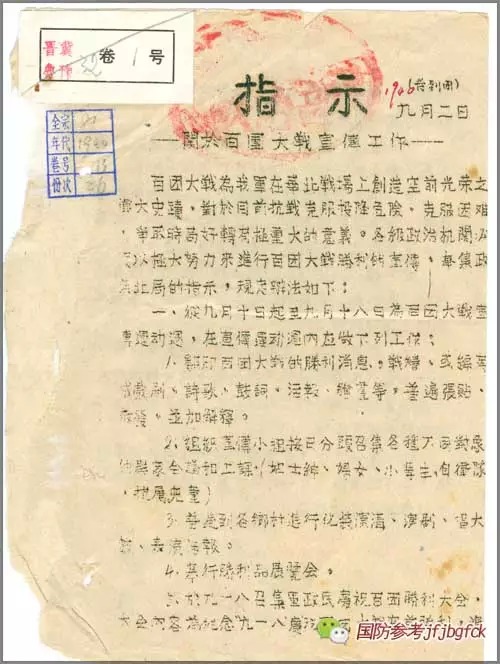 晋冀
卷 1 号
32
全宗
年代 1940
卷号
份次 26
指示
1940(特别团)
九月二日
——關於百團大战宣傳工作——
百团大战為我軍在華北战場上創造空前光荣之
偉大史蹟,對於目前抗战克服投降危險,克服困难
争取時局好轉有極重大的意義。各級政治机関必
须以極大努力來進行百团大战勝利的宣傳,
北局的指示,規定辦法如下:
一、從九月十日起至九月十八日為百团大战宣
傳运动週,在宣傳运动週內应做下列工作:
1.翻印百团大战的勝利消息,战績,或編為
戲劇、詩歌、鼓詞、活報、壁畫等,普遍張貼、
並加解釋。
2.組织宣傳小組按日分頭召集各種不同對象
座談會議和上課。(如士紳、婦女、小學生,自衛隊
3.到各鄉村進行化装演講、演剧、唱大
鼓、表演活報。
4.举行勝利品展覽会。
5.於九一八召集軍政民慶祝百团勝利大会,
大会内容為紀念九一八慶祝百团大战
国防参考jfjbgfck